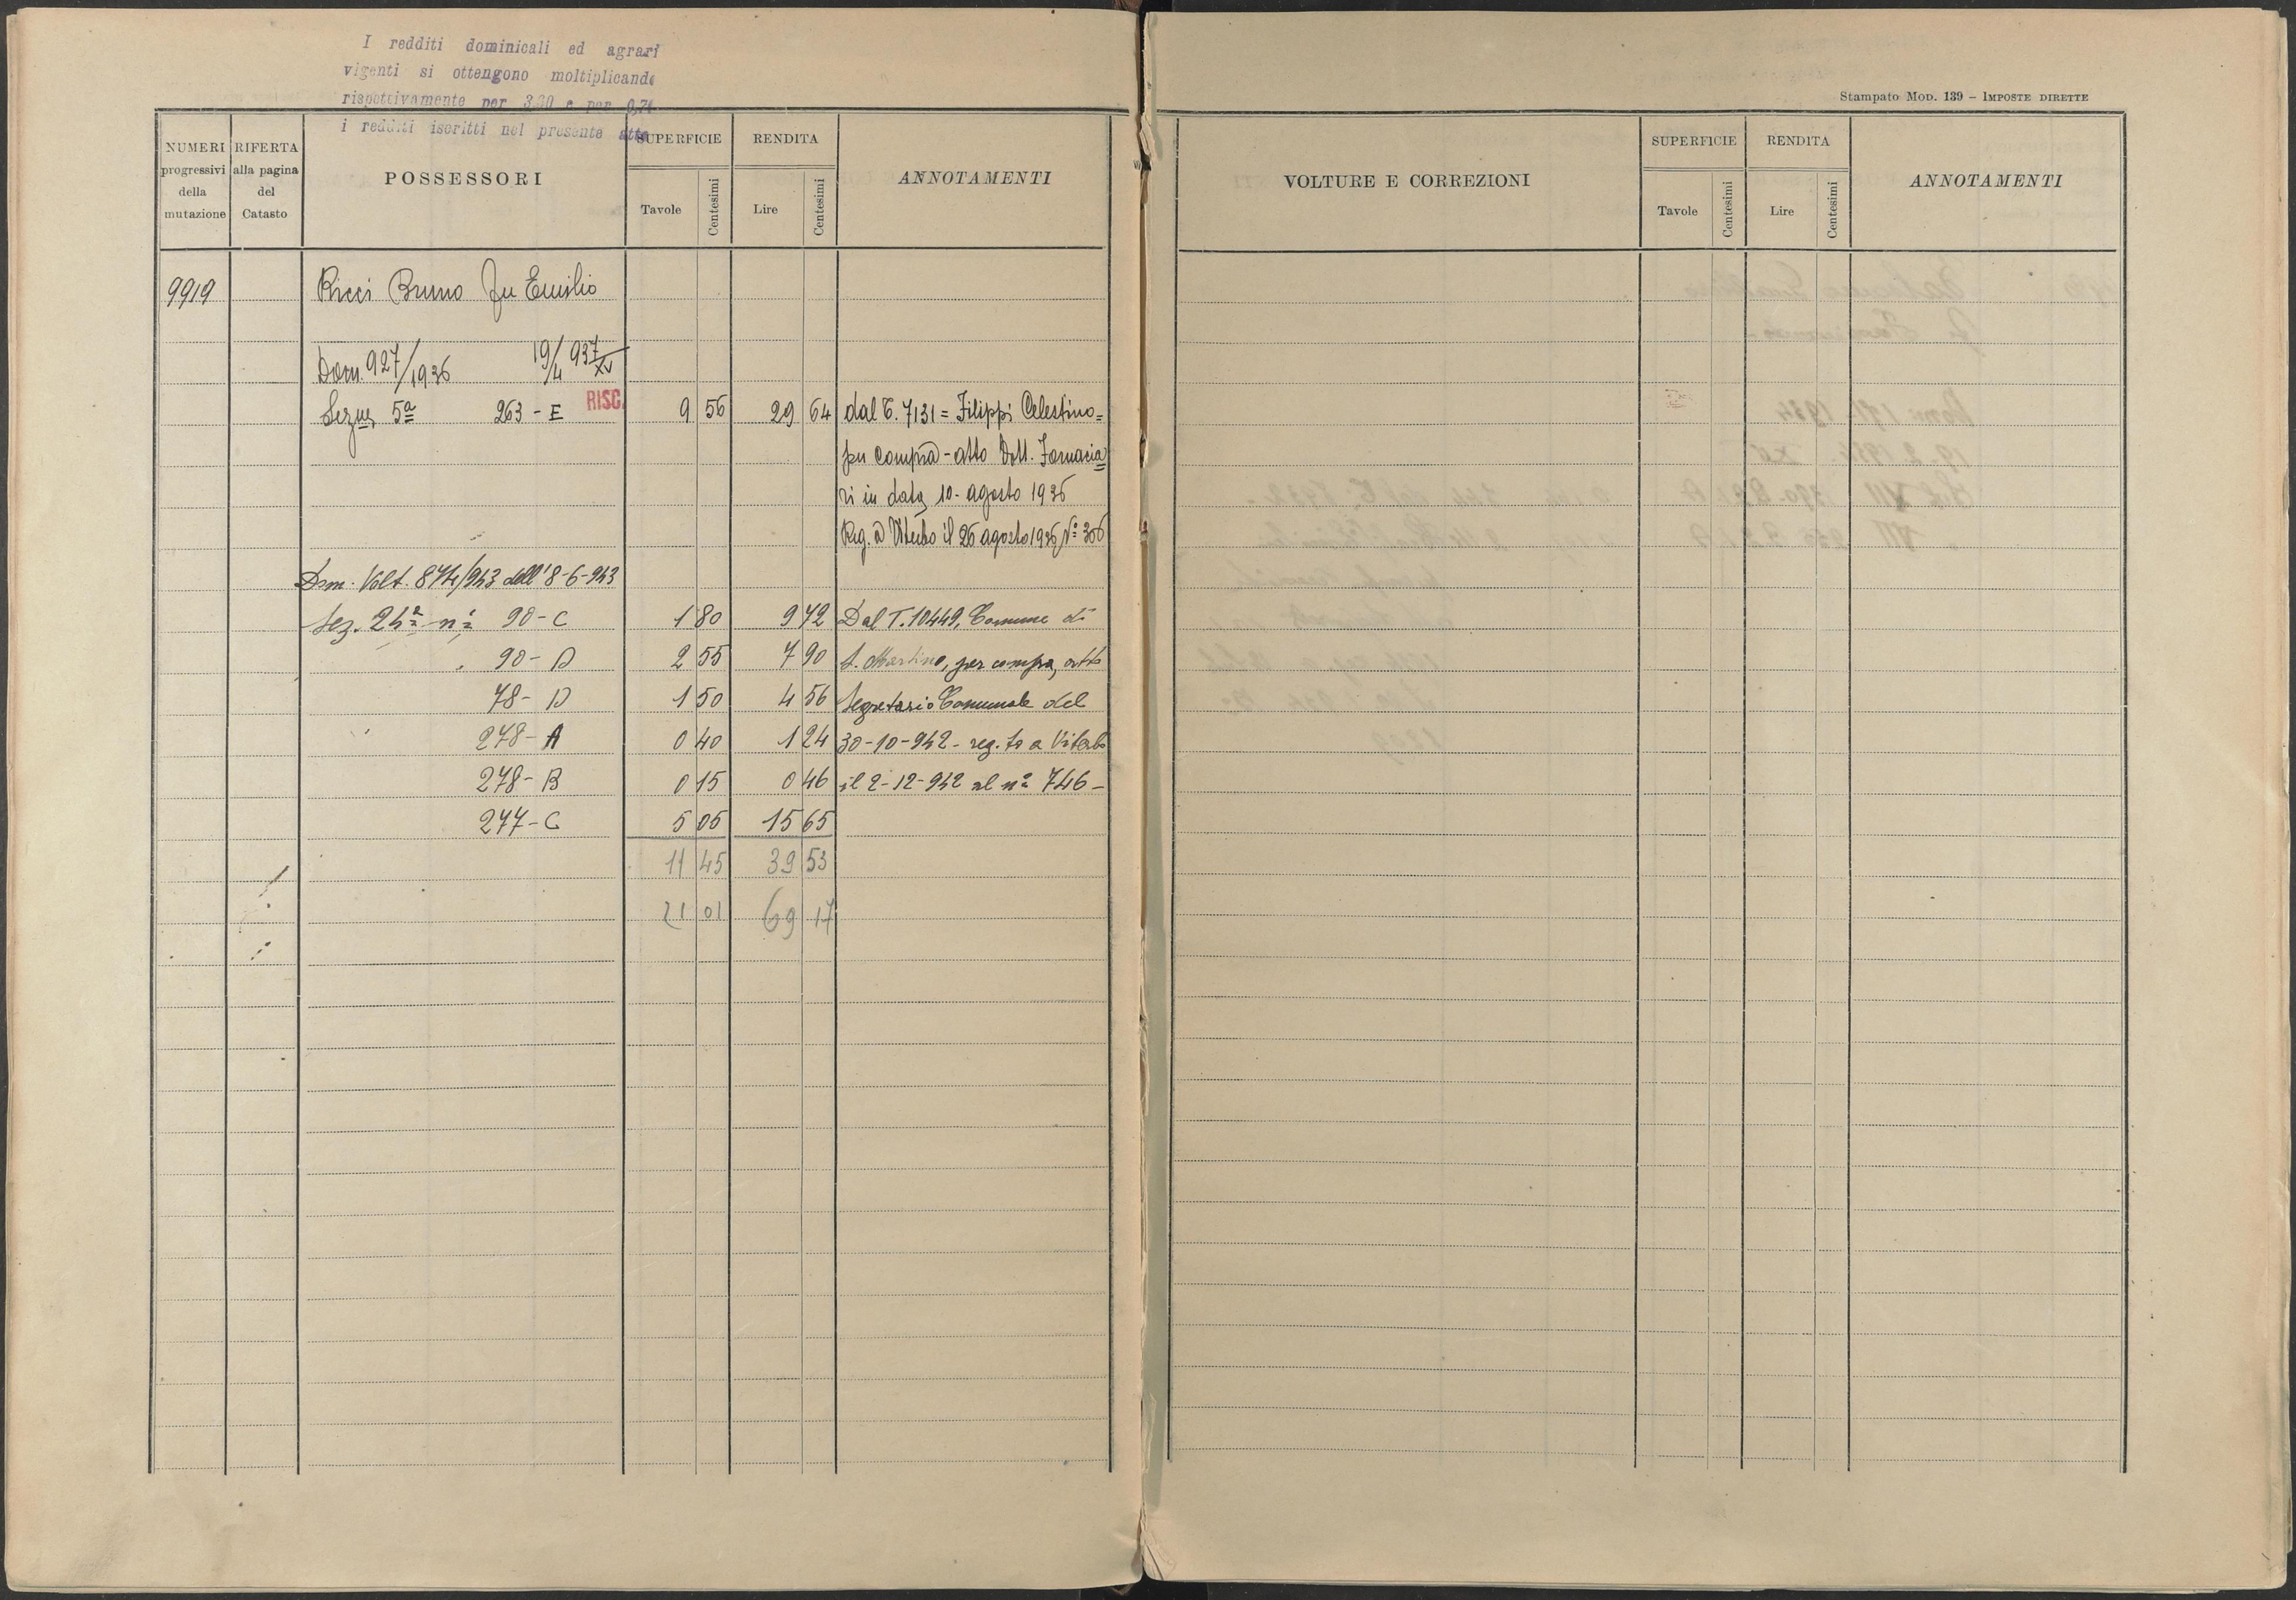 I redditi dominicali ed agrari
vigenti si ottengono moltiplicando
rispettivamente per 3,30 e per 0,74
i redditi iscritti nel presente atto
NUMERI progressivi della mutazione
RIFERTA alla pagina del Catasto
POSSESSORI
SUPERFICIE
Tavole Centesimi
RENDITA
Lire Centesimi
ANNOTAMENTI
9919 Ricci Bruno fu Emilio
Dom. 927/1936 19/4 937 XV
Sezne 5ª 263 - E RISC. 9 56 29 64 dal T. 7131 = Filippi Celestino =
per compra - atto Dott. Fornacia
ri in data 10 - agosto 1936
Reg. a Viterbo il 26 agosto 1936 Nº 306
Dom. Volt. 874/943 dell'8-6-943
Sez. 24ª nº 90 - C 1 80 9 72 Dal T. 10449, Comune di
90 - D 2 55 7 90 S. Martino, per compra, atto
78 - D 1 50 4 56 Segretario Comunale del
278 - A 0 40 1 24 30-10-942 - reg.to a Viterbo
278 - B 0 15 0 46 il 2-12-942 al nº 746 -
277 - C 5 05 15 65
11 45 39 53
21 01 69 17
Stampato Mod. 139 - IMPOSTE DIRETTE
VOLTURE E CORREZIONI
SUPERFICIE
Tavole Centesimi
RENDITA
Lire Centesimi
ANNOTAMENTI